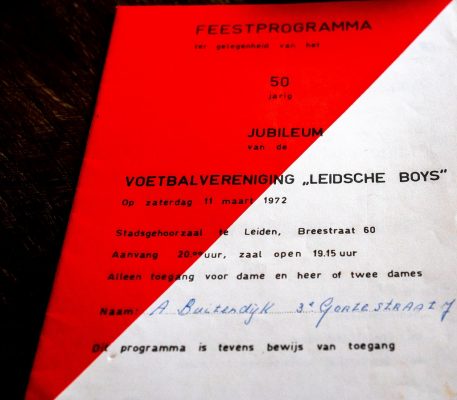 FEESTPROGRAMMA
ter gelegenheid van het
50
jarig
JUBILEUM
van de
VOETBALVERENIGING „LEIDSCHE BOYS"
Op zaterdag 11 maart 1972
Stadsgehoorzaal te Leiden, Breestraat 60
Aanvang 20.00 uur, zaal open 19.15 uur
Alleen toegang voor dame en heer of twee dames
Naam: A Buitendijk 3e Gortestraat 7
Dit programma is tevens bewijs van toegang